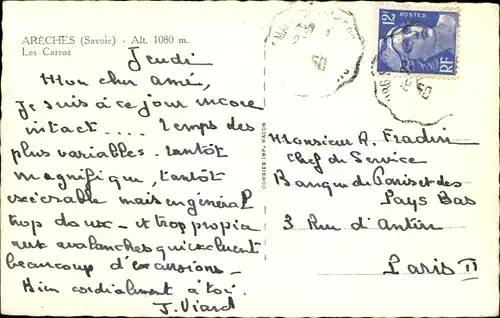 ARÊCHES (Savoie) - Alt. 1080 m.
Les Carroz
Jeudi
Mon cher ami,
Je suis à ce jour encore
intact .... Temps des
plus variables. Tantôt
magnifique, tantôt
exécrable mais en général
trop doux — et trop propice
aux avalanches qui excluent
beaucoup d'excursions —
Bien cordialement à toi.
J. Viard
COMBIER IMP. MACON
12F
POSTES
RF
Monsieur A. Fradin
Chef de Service
Banque de Paris et des
Pays Bas
3 Rue d'Antin
Paris II